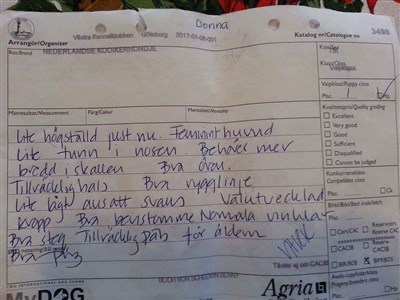 Donna
Västra Kennelklubben Göteborg 2017-01-06-001
Katalog nr/Catalogue no 3498
Arrangör/Organizer
NEDERLANDSE KOOIKERHONDJE
Ras/Breed
Kön/Sex
Klass/Class
Valpklass
Valpklass/Puppy class
Plac. 1 Hp
Mätresultat/Measurement Färg/Colour Mentalitet/Mentality
Kvalitetspris/Quality grading
Excellent
Very good
Good
Sufficient
Disqualified
Cannot be judged
Konkurrensklass
Competition class
Plac. Ck
Plac.
CertCAC Reserv
Reserve CAC
CACIB Reserv-
CACIB
BIR/BOB BIM/BOS
Lite högställd just nu. Feminint huvud
Lite tunn i nosen Behöver mer
bredd i skallen Bra öron.
Tillräcklig hals Bra rygglinje
Lite lågt ansatt svans Välutvecklad
kropp Bra benstomme Normala vinklar
Bra steg Tillräcklig päls för åldern
Bra färg
MY INTERNATIONAL DOG SHOW
MyDOG
Agria